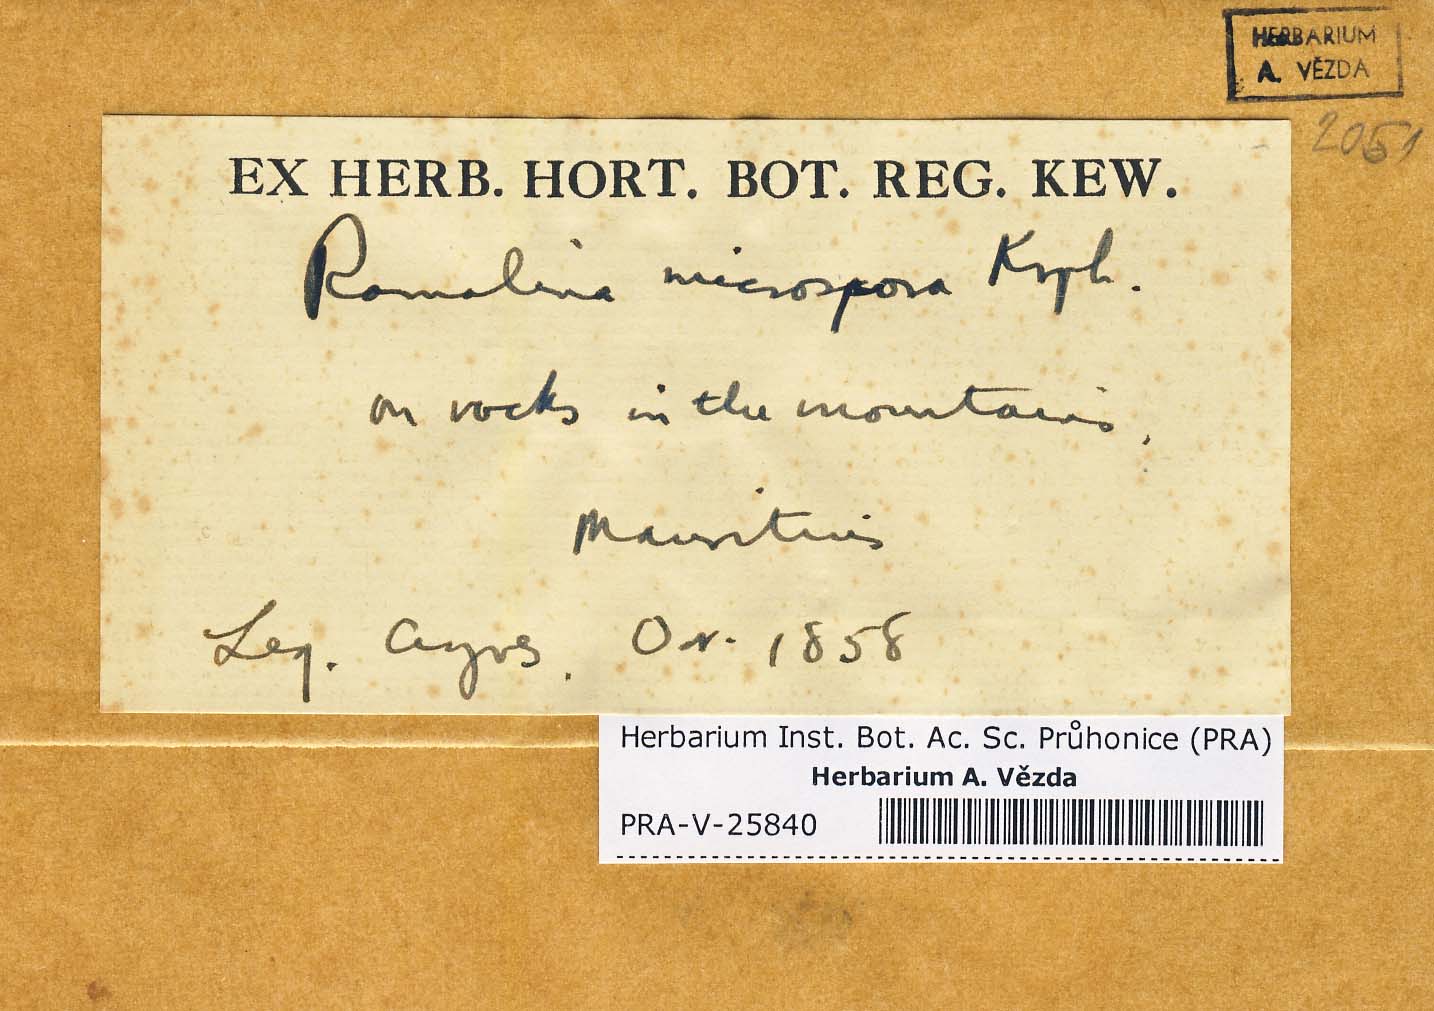 HERBARIUM
A. VĚZDA
2051
EX HERB. HORT. BOT. REG. KEW.
Ramalina microspora Krph.
on rocks in the mountains,
Mauritius
Leg. Ayres.
1858
Herbarium Inst. Bot. Ac. Sc. Průhonice (PRA)
Herbarium A. Vězda
PRA-V-25840